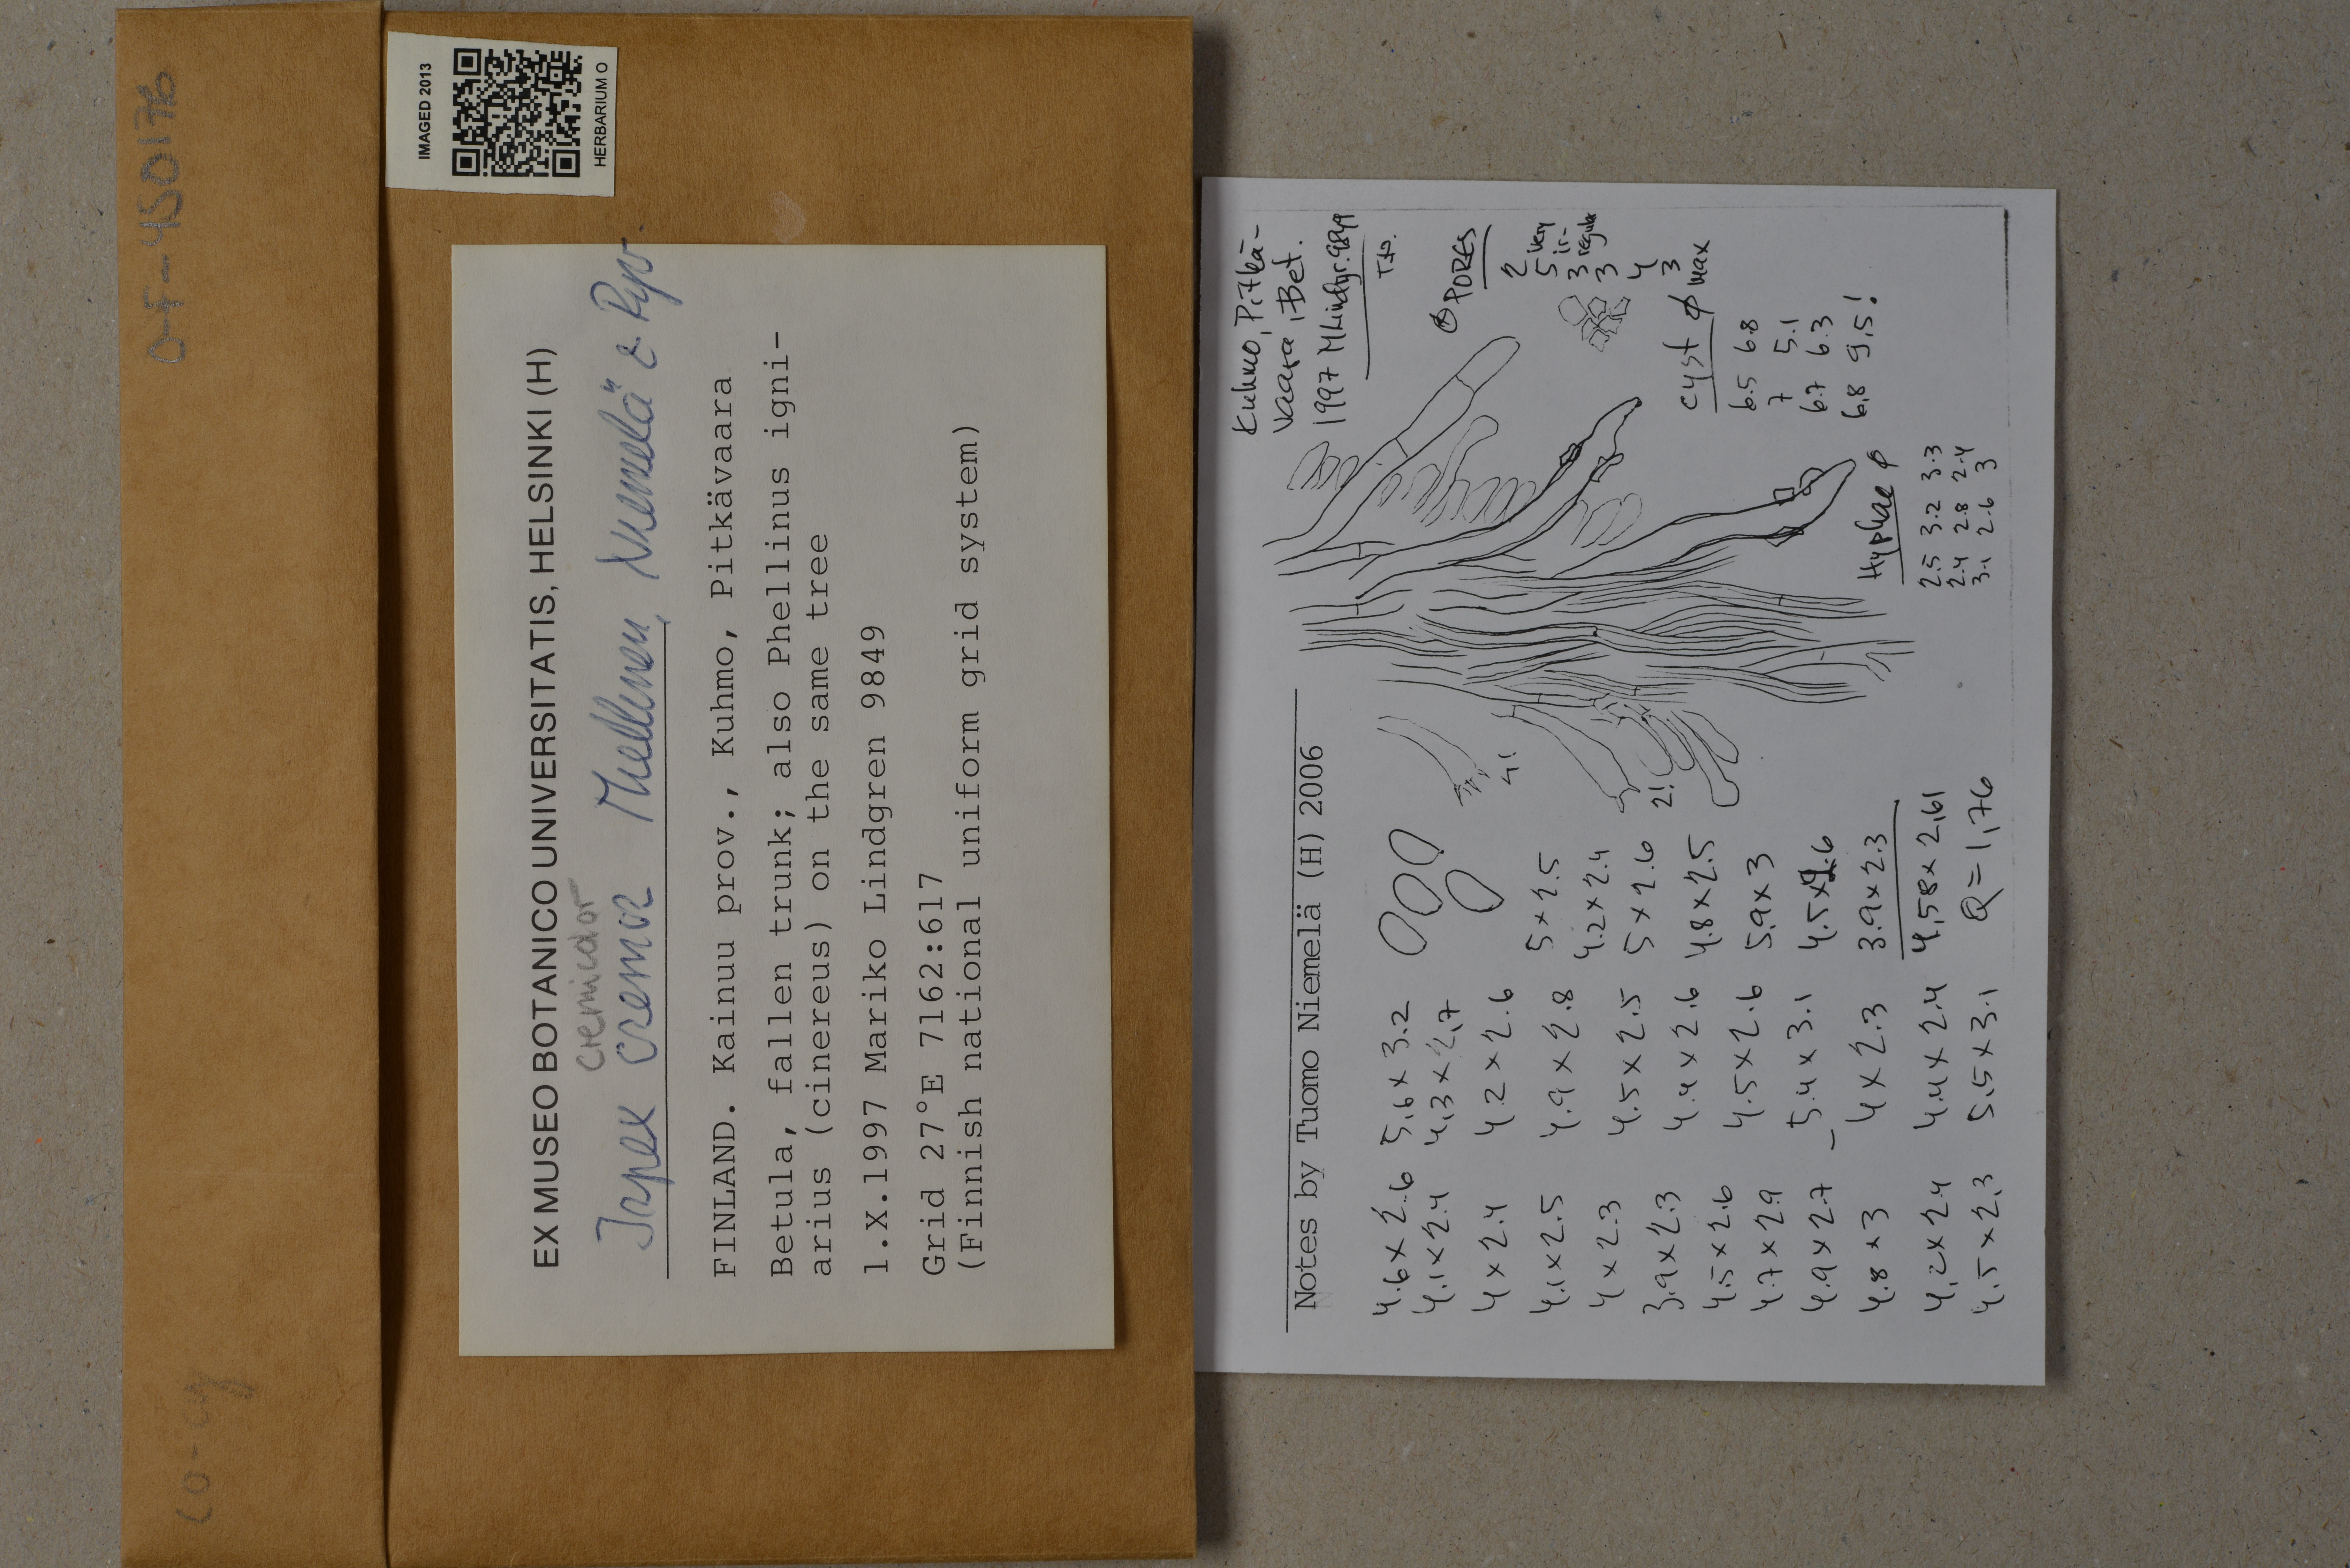 O-F-450176
CO-cy
IMAGED 2013
HERBARIUM O
EX MUSEO BOTANICO UNIVERSITATIS, HELSINKI (H)
cremicolor
Irpex cremor Miettinen, Niemelä & Ryv.
FINLAND. Kainuu prov., Kuhmo, Pitkävaara
Betula, fallen trunk; also Phellinus igni-
arius (cinereus) on the same tree
1.X.1997 Mariko Lindgren 9849
Grid 27°E 7162:617
(Finnish national uniform grid system)
Kuhmo, Pitkä-
vaara, Bet.
1997 MLindgr. 9849
T.N.
Notes by Tuomo Niemelä (H) 2006
PORES
2
5 very
3 ir-
3 regular
4
3
cyst ϕ max
6.5 6.8
7 5.1
6.7 6.3
6,8 9,5!
Hyphae ϕ
2.5 3.2 3.3
2.4 2.8 2.4
3.1 2.6 3
4!
2!
4.6 x 2.6 5,6 x 3.2
4.1 x 2.4 4,3 x 2,7
4 x 2.4 4.2 x 2.6
4.1 x 2.5 4.9 x 2.8 5 x 2.5
4 x 2.3 4.5 x 2.5 4.2 x 2.4
3.9 x 2.3 4.4 x 2.6 5 x 2.6
4.5 x 2.6 4.5 x 2.6 4.8 x 2.5
4.7 x 2.9 5.4 x 3.1 5,9 x 3
4.9 x 2.7 4 x 2.3 4.5 x 2.6
4.8 x 3 4.4 x 2.4 3.9 x 2.3
4,2 x 2.4 5,5 x 3.1 4,58 x 2,61
4.5 x 2,3 Q = 1,76